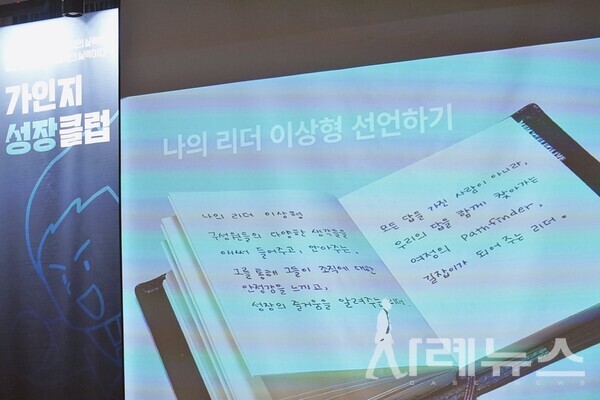 가인지
성장클럽
나의 리더 이상형 선언하기
나의 리더 이상형
구성원들의 다양한 생각들을
애써 들어주고, 안아주는,
그를 통해 그들이 조직에 대한
안정감을 느끼고,
성장의 즐거움을 알려주는 리더
모든 답을 가진 사람이 아니라,
우리의 답을 함께 찾아가는
여정의 pathfinder,
길잡이가 되어 주는 리더.
사례뉴스